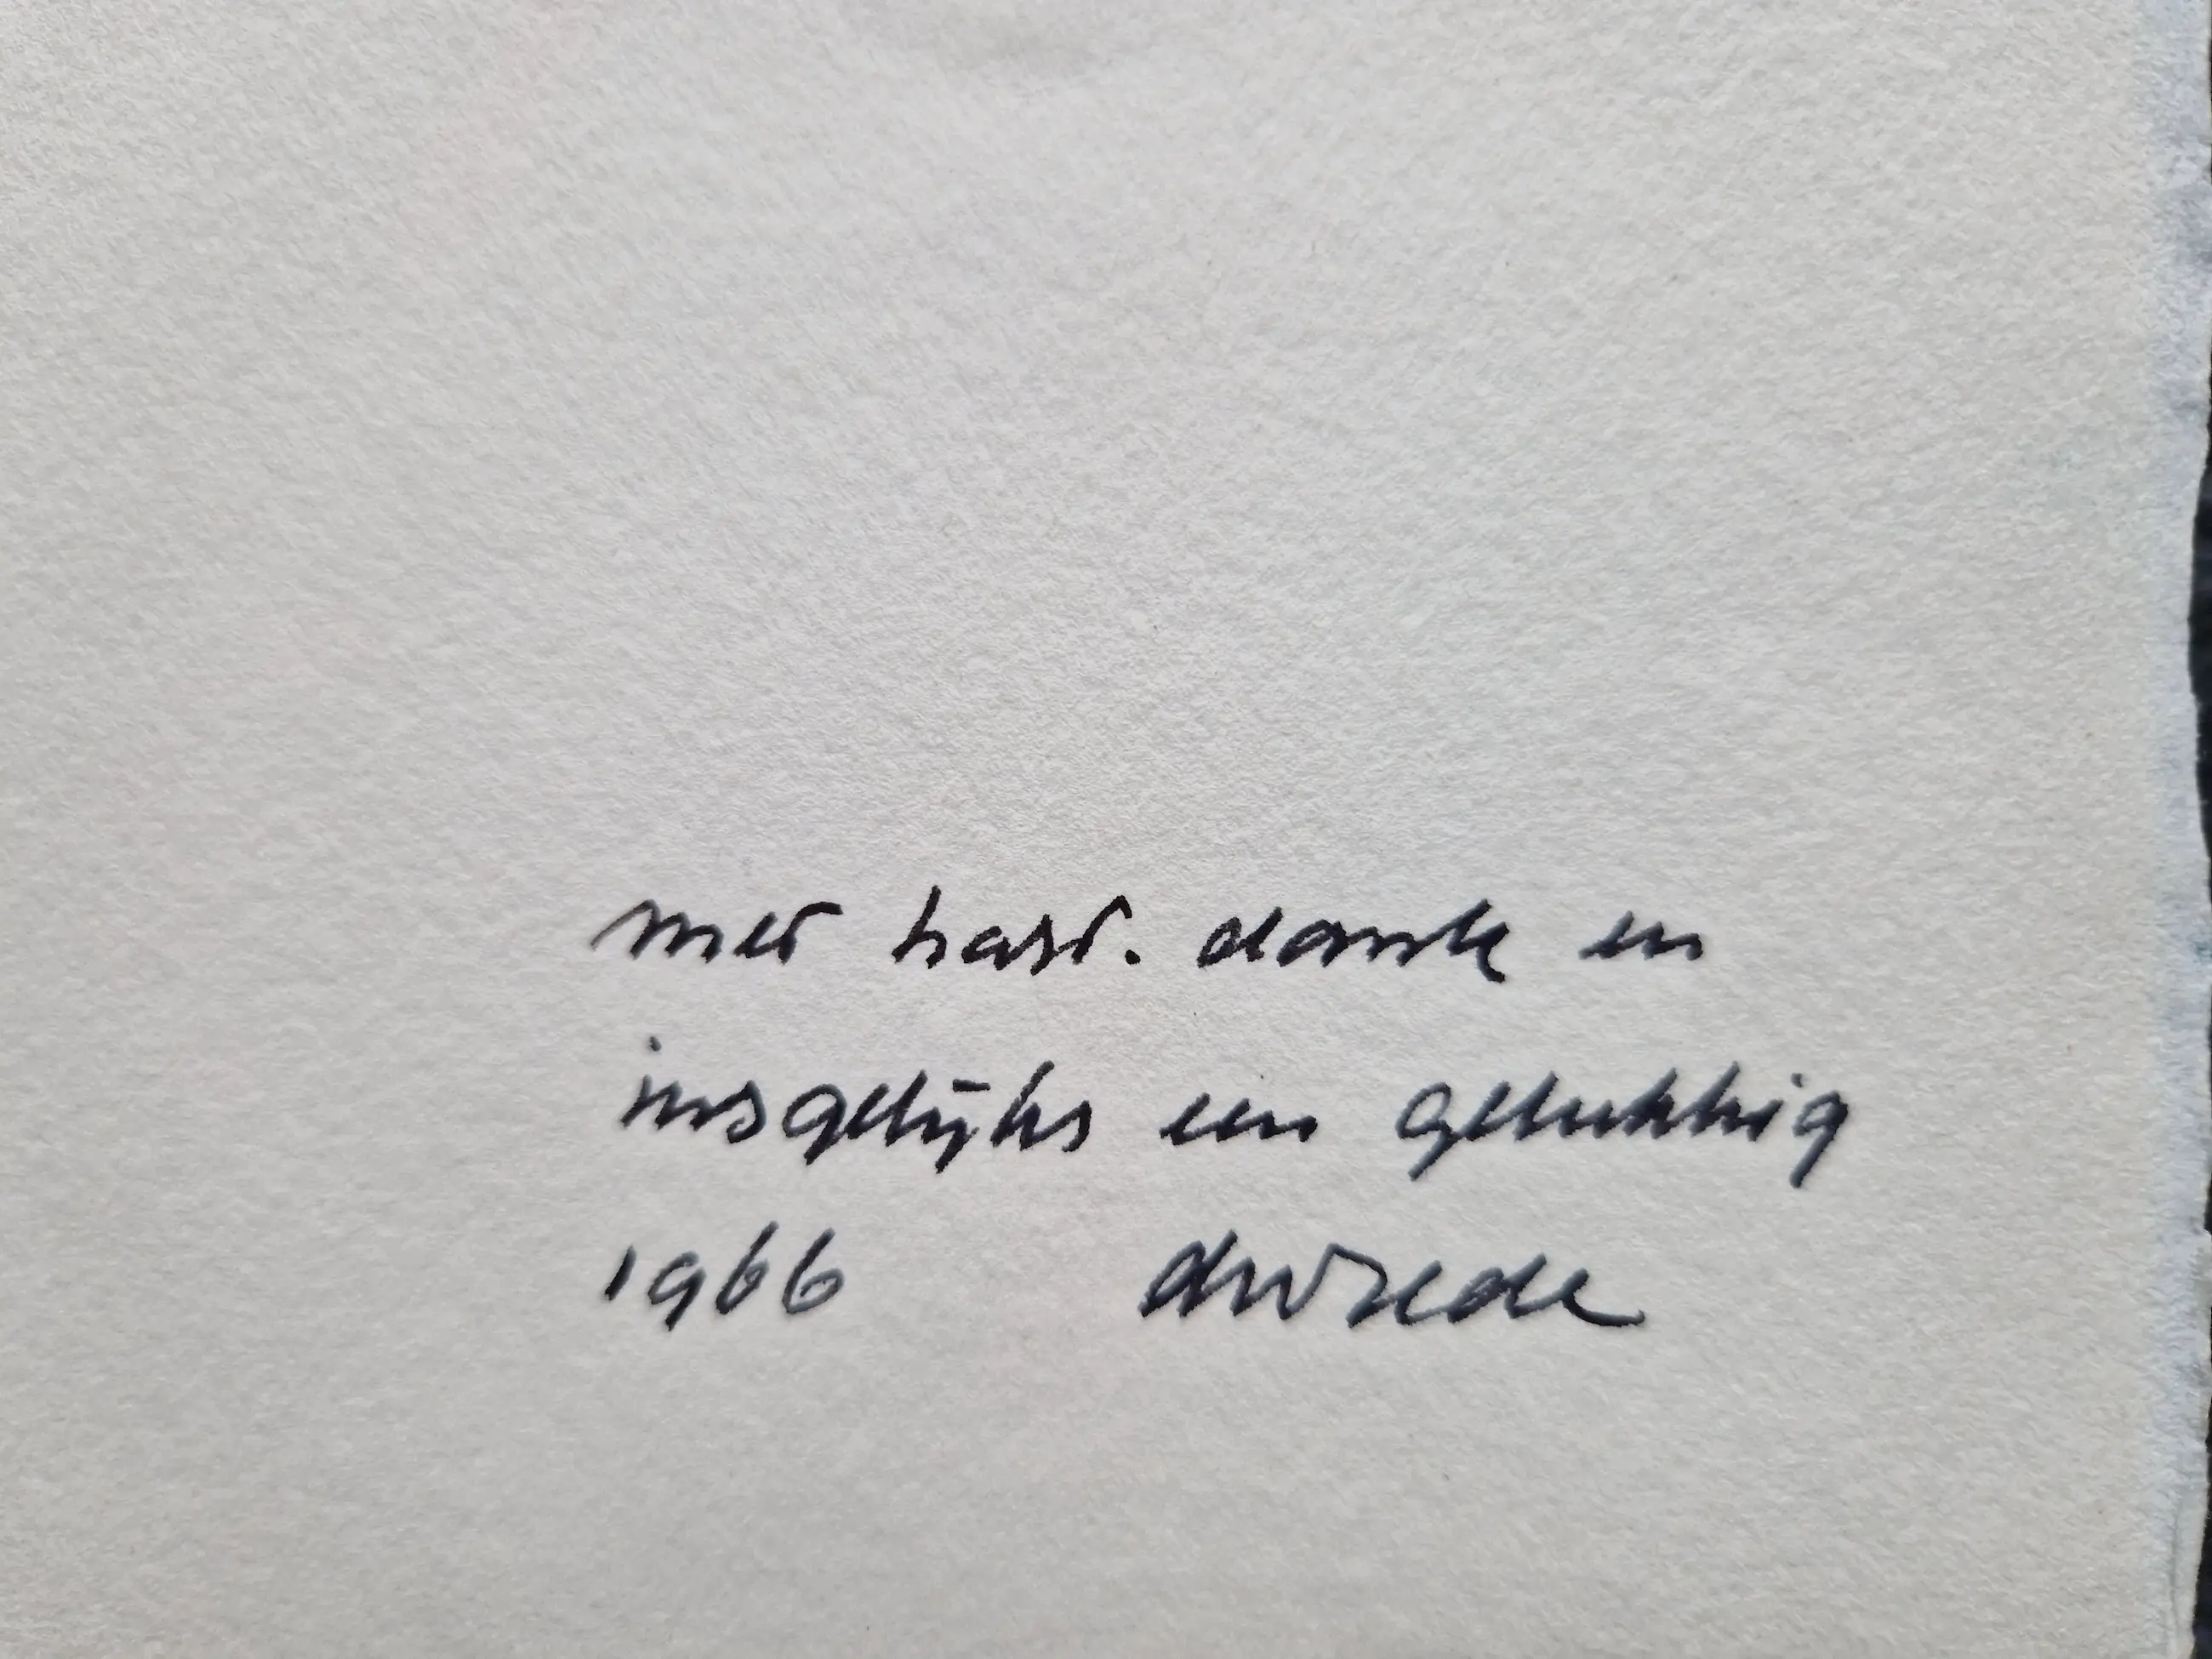 met hart. dank en
insgelijks een gelukkig
1966 dwrede